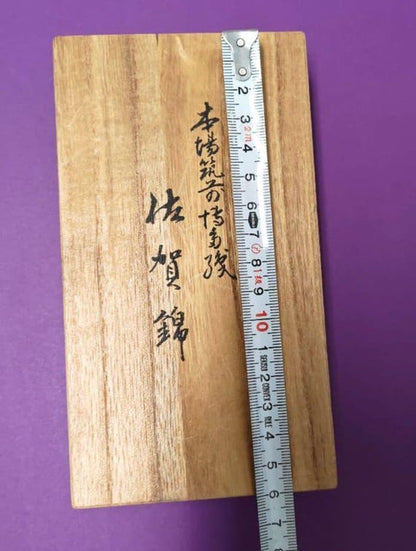 本場筑前博多織
佐賀錦
2
3
4
5
6
7
8
1級
9
10
1
2
3
4
5
6
7